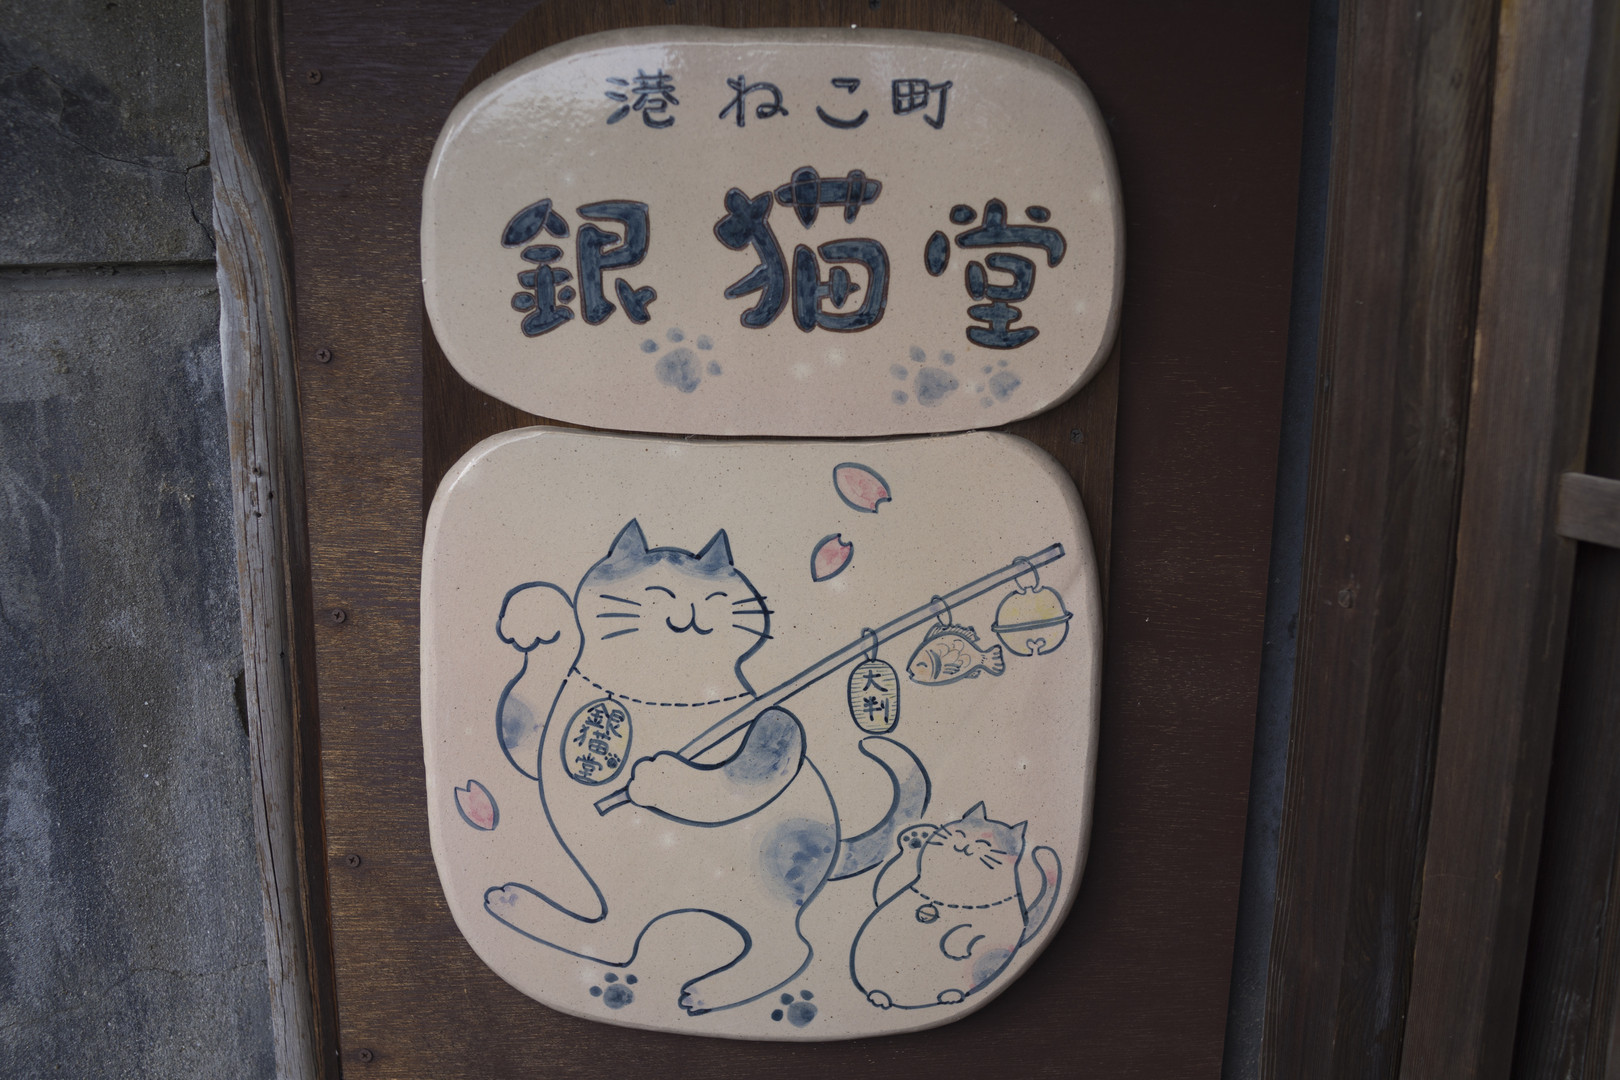 港ねこ町
銀猫堂
大判
銀猫堂